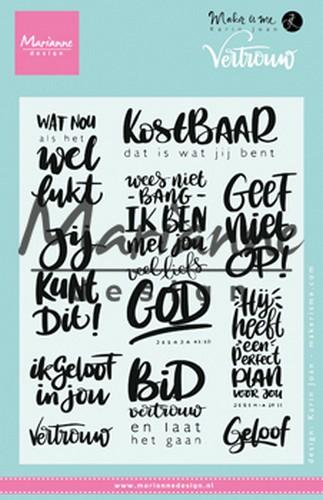 Marianne
design
Maker is me
Karin Joan
Vertrouw
WAT NOU
als het
wel
lukt
jij
KUNT
Dit!
KostBAAR
dat is wat jij bent
wees niet
- BANG -
IK BEN
met jou
veel liefs
GOD
JESAJA 41:10
GEEF
niet
OP!
Hij
heeft
een
PERFECT
PLAN
voor jou
JEREMIA 29:11
ik geloof
in jou
Vertrouw
BiD
vertrouw
en laat
het gaan
Geloof
Marianne
design
design: Karin Joan - makerisme.com
www.mariannedesign.nl